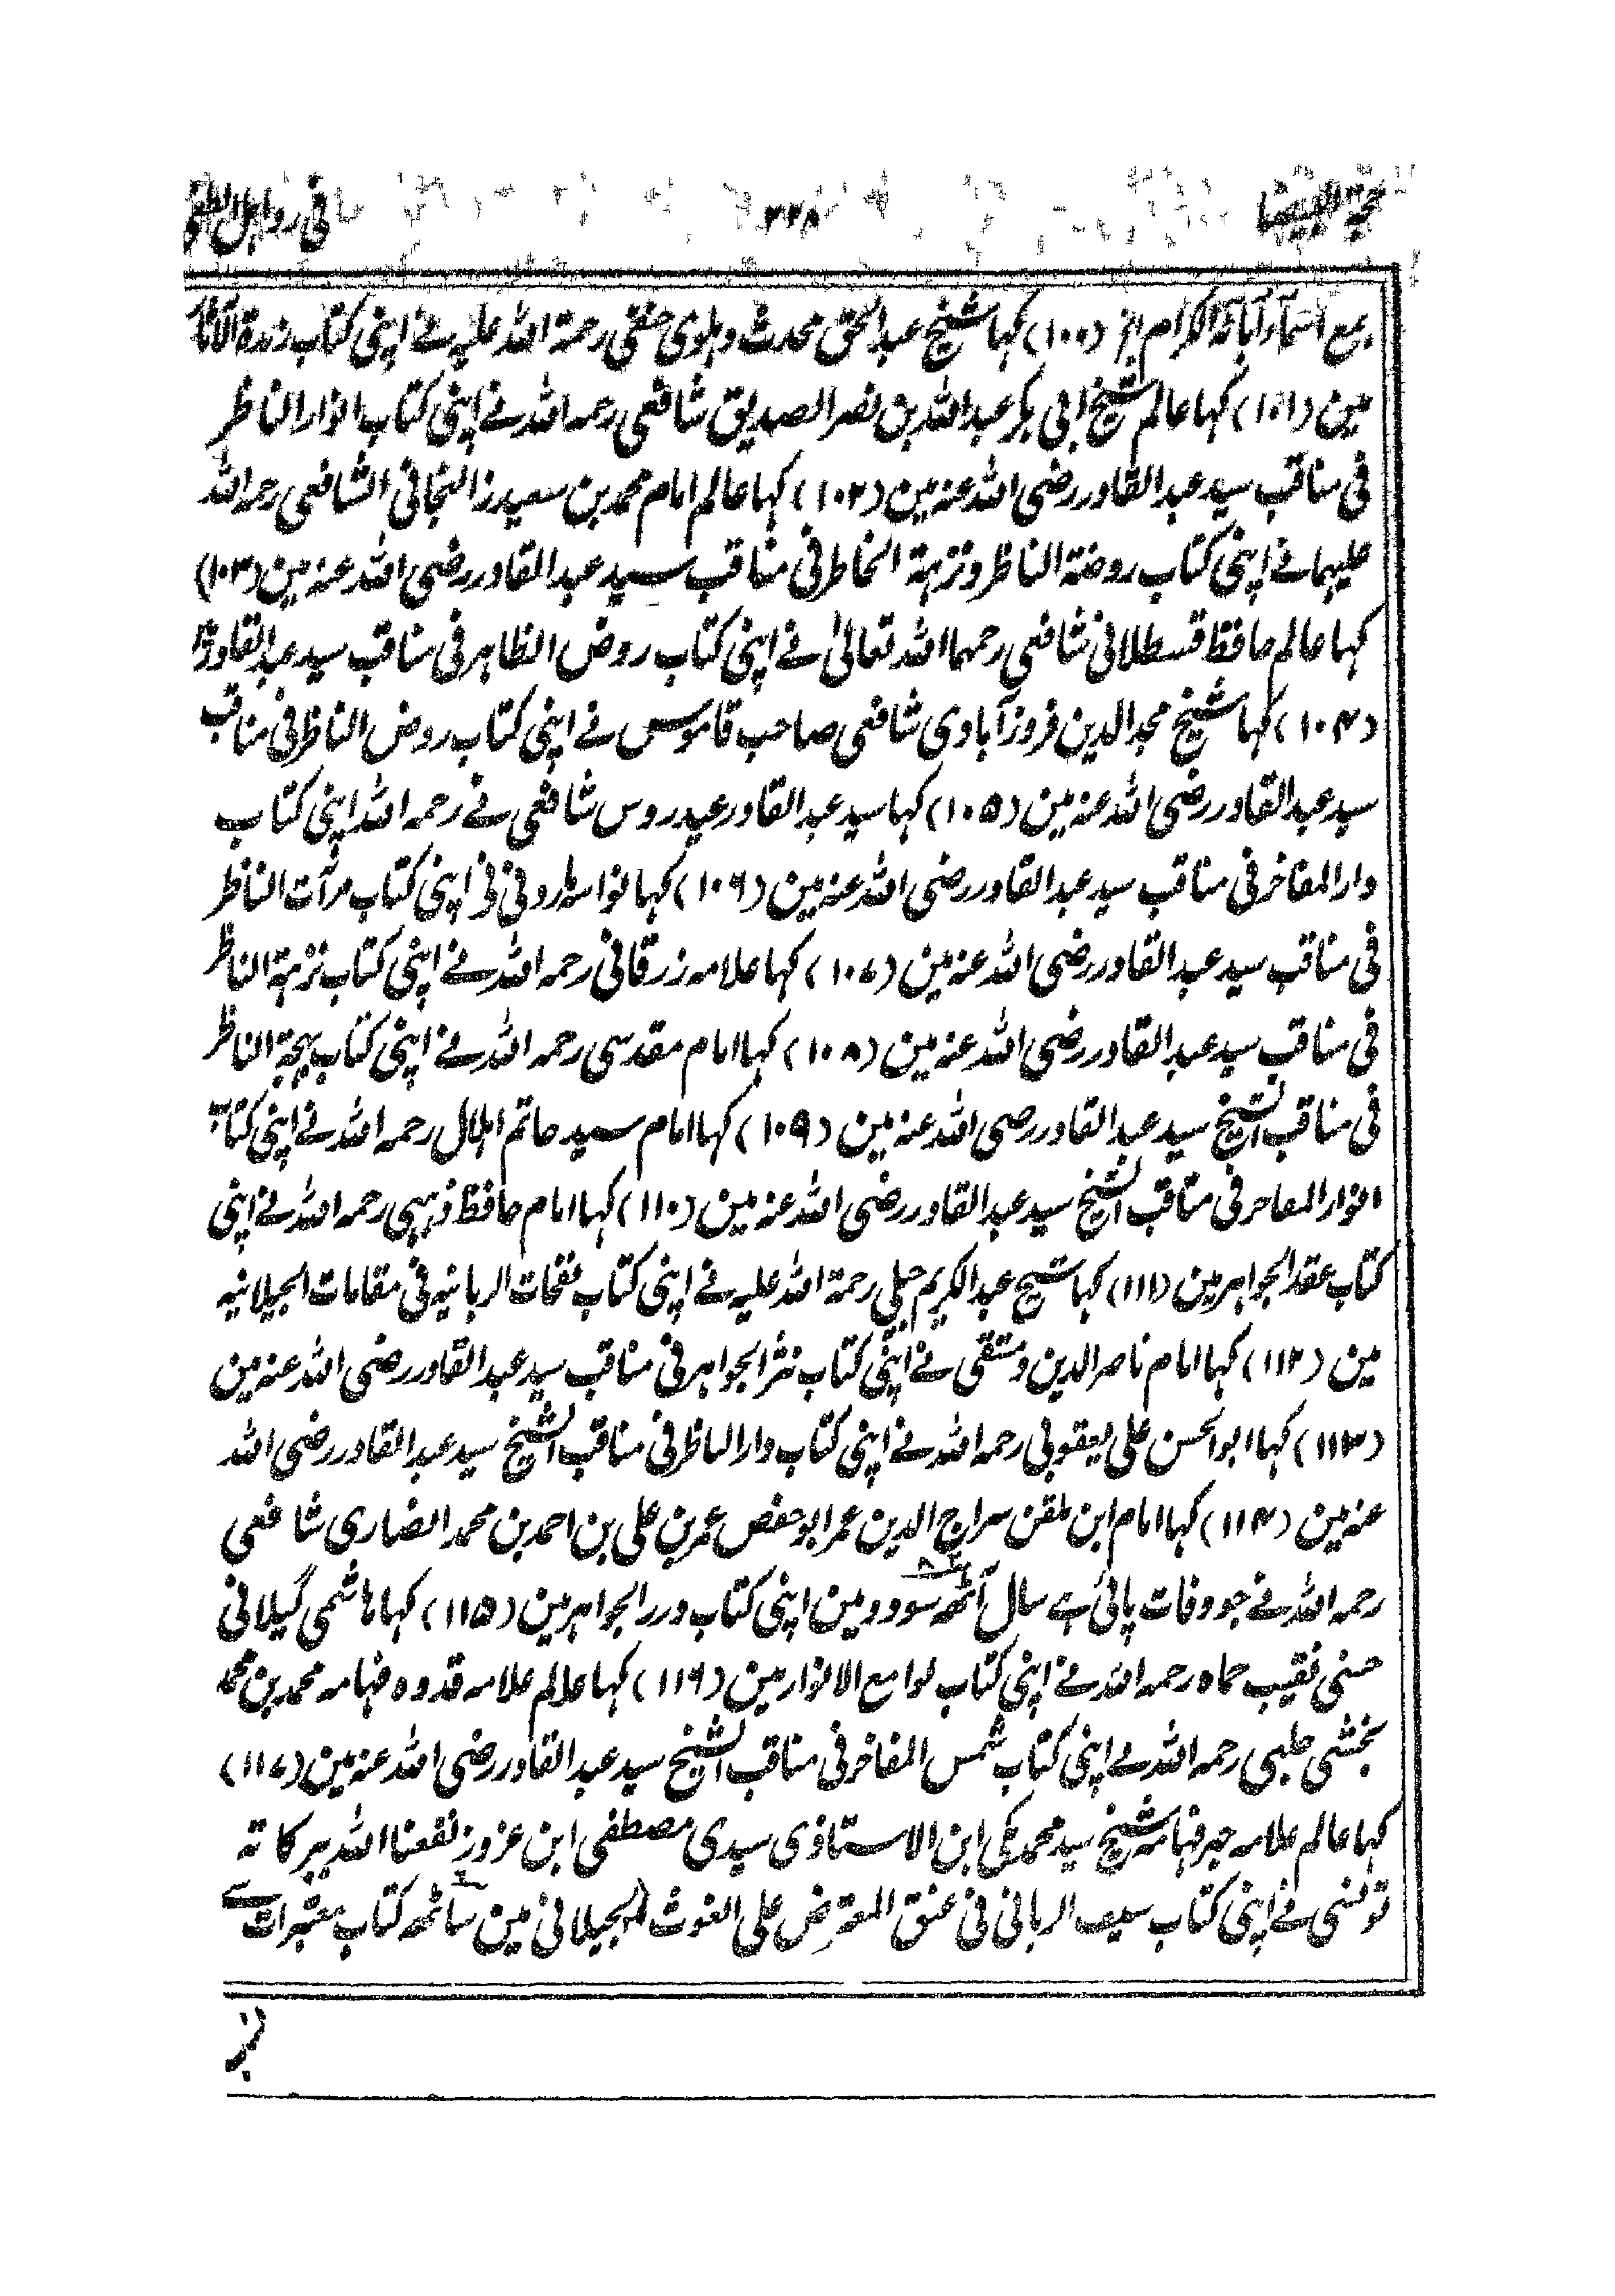 حجۃ البیضا ۲۲۸ فی رد اہل الطغی
مع اسماء آبائہ الکرام الخ (۱۰۰) کہا شیخ عبدالحق محدث دہلوی حنفی رحمۃ اللہ علیہ نے اپنی کتاب زبدۃ الآثار
مین (۱۰۱) کہا عالم شیخ ابی بکر عبداللہ بن نصر الصدیق شافعی رحمہ اللہ نے اپنی کتاب انوار الناظر
فی مناقب سید عبدالقادر رضی اللہ عنہ مین (۱۰۲) کہا عالم امام محمد بن سعید زالنجانی الشافعی رحمہ اللہ
علیہما نے اپنی کتاب روضۃ الناظر و نزہۃ الخاطر فی مناقب سید عبدالقادر رضی اللہ عنہ مین (۱۰۳)
کہا عالم حافظ قسطلانی شافعی رحمہما اللہ تعالیٰ نے اپنی کتاب روض الظاہر فی مناقب سید عبدالقادر
(۱۰۴) کہا شیخ مجدالدین فروزآبادی شافعی صاحب قاموس نے اپنی کتاب روض الناظر فی مناقب
سید عبدالقادر رضی اللہ عنہ مین (۱۰۵) کہا سید عبدالقادر عیدروس شافعی نے رحمہ اللہ اپنی کتاب
دار المفاخر فی مناقب سید عبدالقادر رضی اللہ عنہ مین (۱۰۶) کہا نے اپنی کتاب مرآت الناظر
فی مناقب سید عبدالقادر رضی اللہ عنہ مین (۱۰۷) کہا علامہ زرقانی رحمہ اللہ نے اپنی کتاب نزہۃ الناظر
فی مناقب سید عبدالقادر رضی اللہ عنہ مین (۱۰۸) کہا امام مقدسی رحمہ اللہ نے اپنی کتاب بہجۃ الناظر
فی مناقب الشیخ سید عبدالقادر رضی اللہ عنہ مین (۱۰۹) کہا امام سید حاتم اہدل رحمہ اللہ نے اپنی کتاب
انوار المفاخر فی مناقب الشیخ سید عبدالقادر رضی اللہ عنہ مین (۱۱۰) کہا امام حافظ ذہبی رحمہ اللہ نے اپنی
کتاب عقد الجواہر مین (۱۱۱) کہا شیخ عبدالکریم جیلی رحمۃ اللہ علیہ نے اپنی کتاب نفخات الربانیہ فی مقامات الجیلانیہ
مین (۱۱۲) کہا امام ناصرالدین دمشقی نے اپنی کتاب نثر الجواہر فی مناقب سید عبدالقادر رضی اللہ عنہ مین
(۱۱۳) کہا ابوالحسن علی یعقوبی رحمہ اللہ نے اپنی کتاب دار الناظر فی مناقب الشیخ سید عبدالقادر رضی اللہ
عنہ مین (۱۱۴) کہا امام ابن ملقن سراج الدین عمر ابو حفص عمر بن علی بن احمد بن محمد انصاری شافعی
رحمہ اللہ نے جو وفات پائی ہے سال آٹھہ سو دو مین اپنی کتاب درر الجواہر مین (۱۱۵) کہا ہاشمی گیلانی
حسنی نقیب حماہ رحمہ اللہ نے اپنی کتاب لوامع الانوار مین (۱۱۶) کہا عالم علامہ قدوہ فہامہ محمد بن محمد
بخشی حلبی رحمہ اللہ نے اپنی کتاب شمس المفاخر فی مناقب الشیخ سید عبدالقادر رضی اللہ عنہ مین (۱۱۷)
کہا عالم علامہ حبر فہامہ شیخ سید محمد مکی ابن الاستاذی سیدی مصطفی ابن عزوز نفعنا اللہ ببرکاتہ
تونسی نے اپنی کتاب سیف الربانی فی عنق المعترض علی الغوث الجیلانی مین ساٹھہ کتاب معتبرات سے